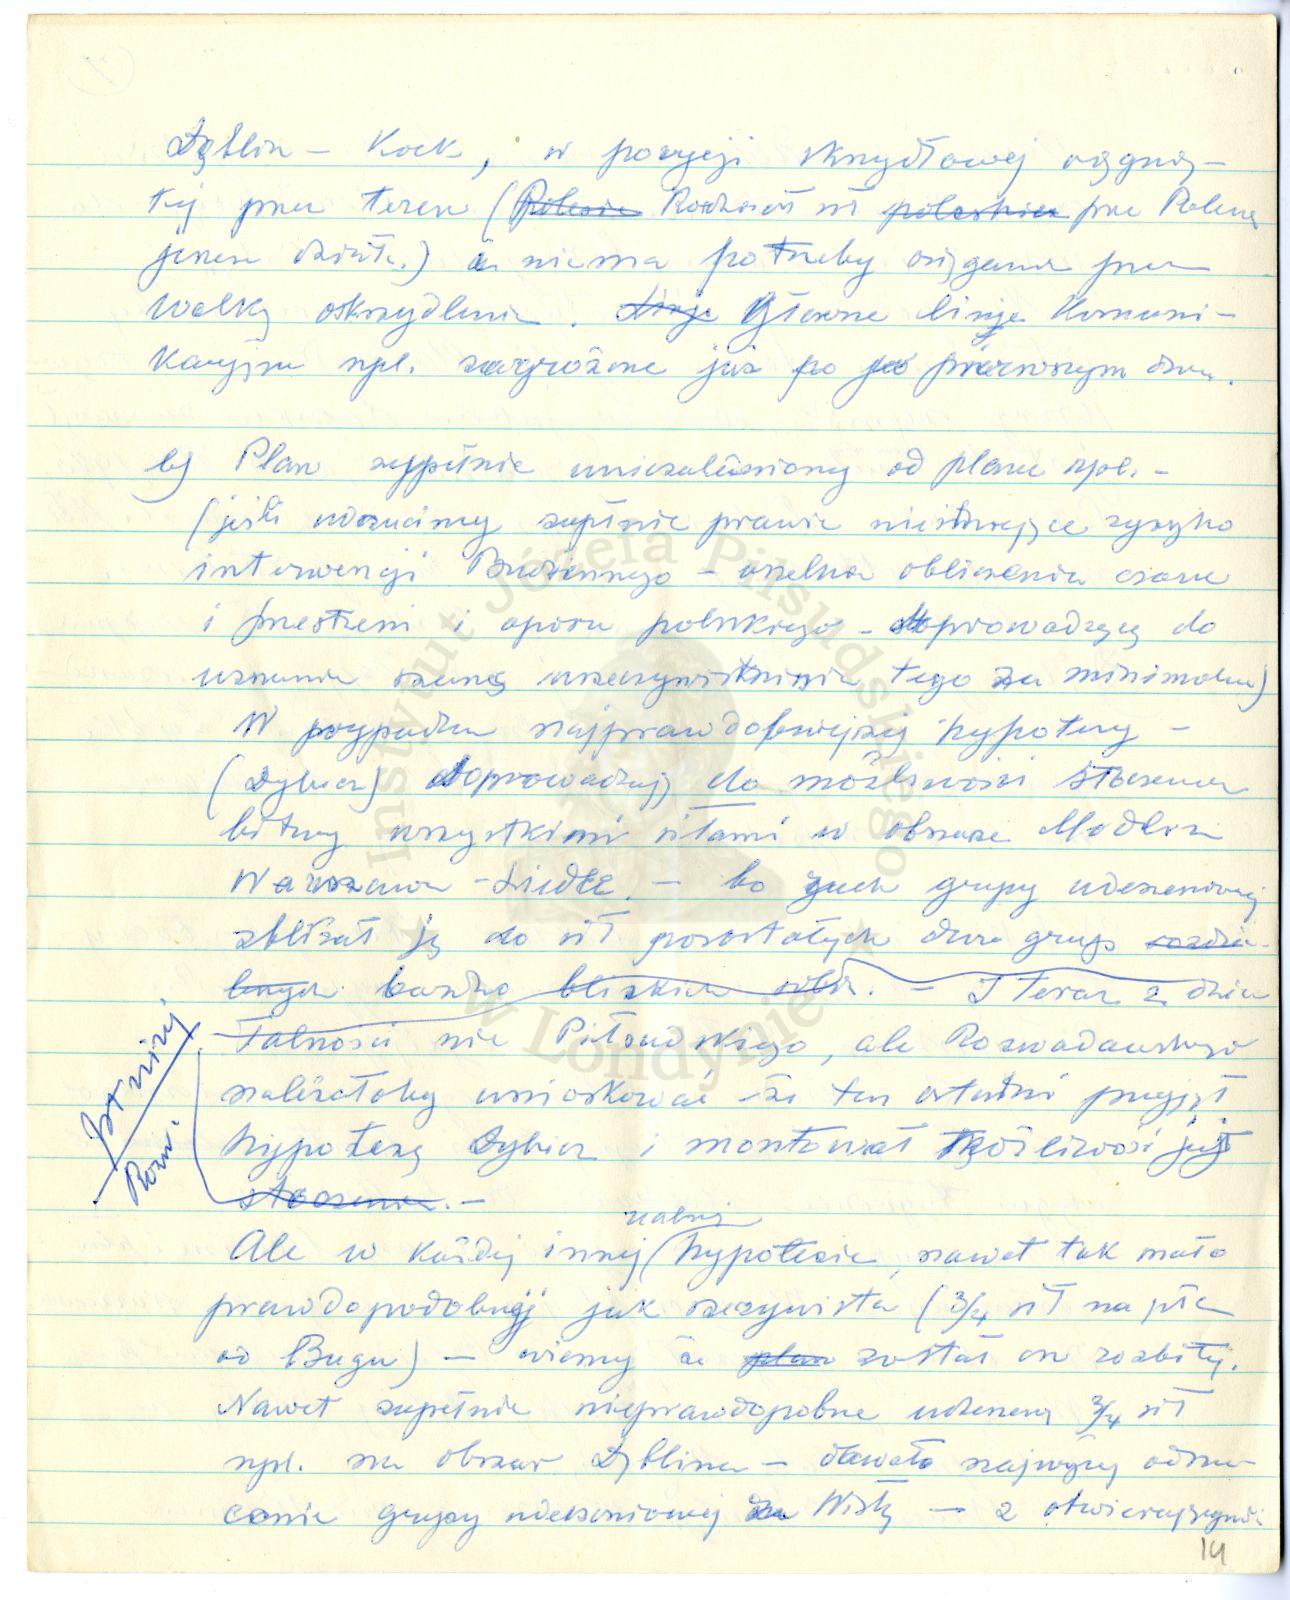 Dęblin – Kock, w pozycji skrzydłowej osiągnię-
tej przez teren ( Polesie Rozdział sił przez Polesie
jeszcze działa.) i niema potrzeby osiągania przez
walkę oskrzydlenia. Linje Główne linje Komuni-
kacyjne npl. zagrożone już po pierwszym dniu.
b) Plan zupełnie uniezależniony od planu npl. –
(jeśli odrzucimy zupełnie prawie nieistniejące ryzyko
interwencji Budiennego – wszelkie obliczenia czasu
i przestrzeni i oporu polskiego – doprowadzają do
uznania szansy urzeczywistnienia tego za minimalne)
W przypadku najprawdobniejszej hypotezy –
(Dybicz) doprowadzają do możliwości stoczenia
bitwy wszystkimi siłami w obszarze Modlin
Warszawa – Siedlce. – bo ruch grupy uderzeniowej
zbliżał ją do sił pozostałych dwu grup
bardzo bliskich sobie. – I teraz z dzia
łalności nie Piłsudskiego, ale Rozwadowskiego
należałoby wnioskować że ten ostatni przyjął
hypotezę Dybicz i montował możliwość jej
stoczenia. –
Jest niżej
Rozw.
Ale w każdej innej hypotezie, nawet tak mało
prawdopodobnej jak rzeczywista (3/4 sił na płn
od Bugu) – wiemy że plan został on rozbity.
Nawet zupełnie nieprawdopobne uderzenie 3/4 sił
npl. na obszar Dęblina – dawało najwyżej odrzu
cenie grupy uderzeniowej za Wisłę – z
14
Instytut Józefa Piłsudskiego
w Londynie